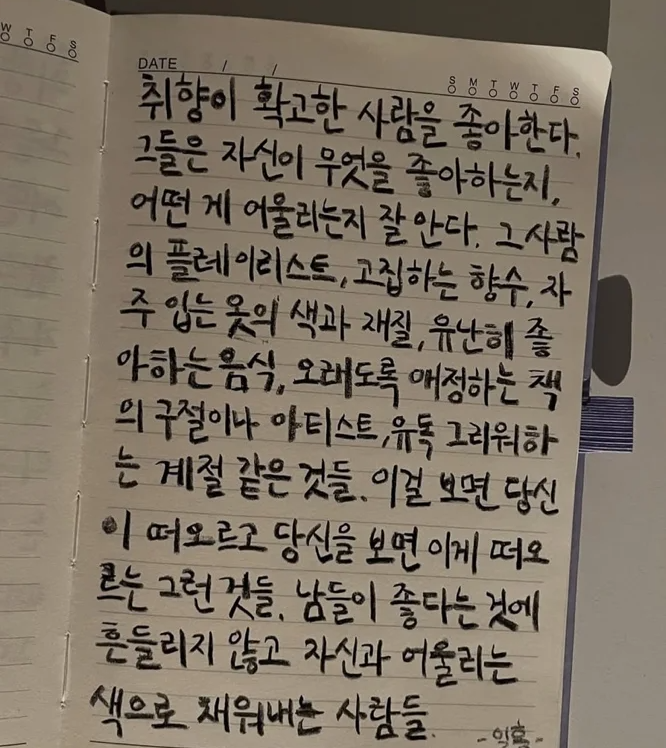 W T F S
DATE / /
S M T W T F S
취향이 확고한 사람을 좋아한다.
그들은 자신이 무엇을 좋아하는지,
어떤 게 어울리는지 잘 안다. 그 사람
의 플레이리스트, 고집하는 향수, 자
주 입는 옷의 색과 재질, 유난히 좋
아하는 음식, 오래도록 애정하는 책
의 구절이나 아티스트, 유독 그리워하
는 계절 같은 것들. 이걸 보면 당신
이 떠오르고 당신을 보면 이게 떠오
르는 그런 것들. 남들이 좋다는 것에
흔들리지 않고 자신과 어울리는
색으로 채워내는 사람들.